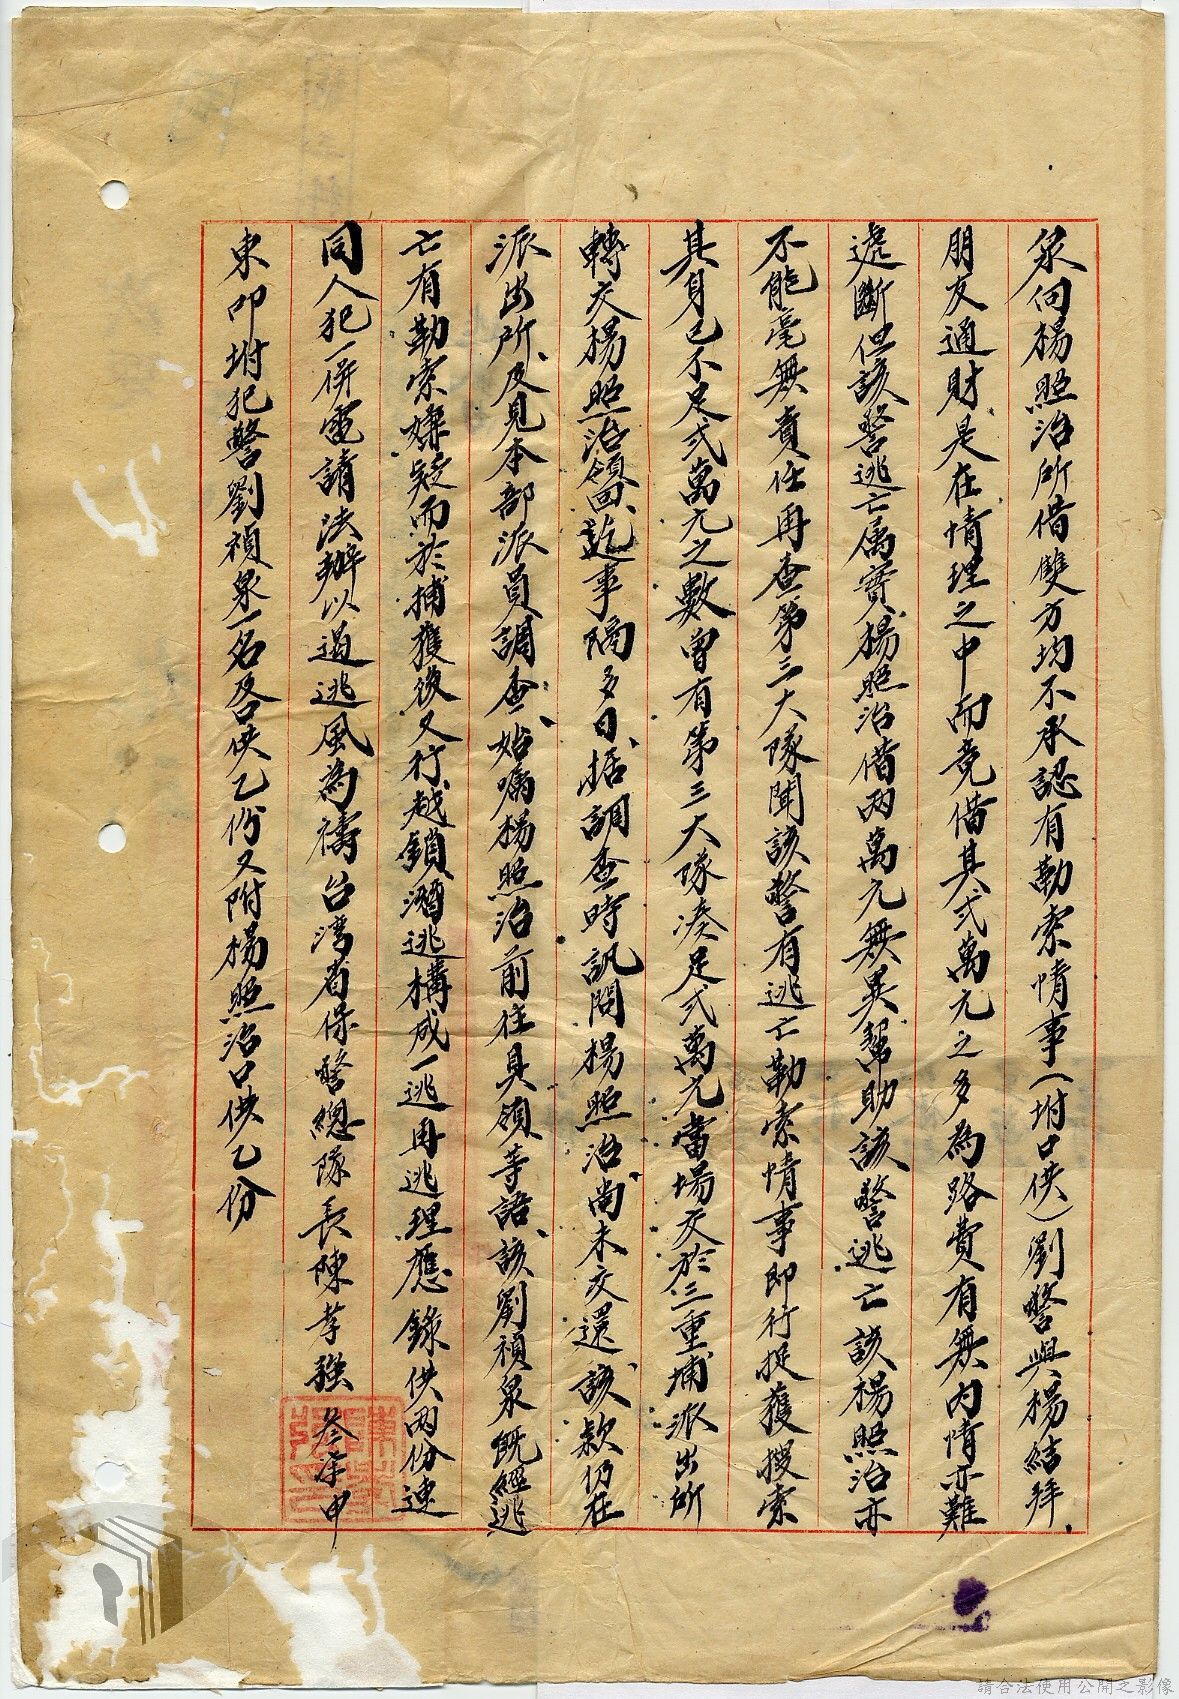 泉向楊照治所借雙方均不承認有勒索情事(坿口供)劉警與楊結拜、
朋友通財是在情理之中而竟借其弍萬元之多為路費有無內情亦難
遽斷但該警逃亡属實、楊照治借兩萬元無異幫助該警逃亡該楊照治亦
不能毫無責任再查第三大隊聞該警有逃亡勒索情事即行捉獲搜索
其身已不足弍萬元之數曾有第三大隊凑足弍萬元當場交於三重埔派出所
轉交楊照治領回、訖事隔多日、据調查時訊問楊照治、尚未交還、該款仍在
派出所、及見本部派員調查、始嘱楊照治前往具領等語、該劉禎泉既經逃
亡有勒索嫌疑而於捕獲後又行、越鎖潛逃構成一逃再逃理應錄供兩份連
同人犯一併電請法辦以遏逃風為禱台湾省保警總隊長陳孝強叄 申
東叩坿犯警劉禎泉一名各供乙份又附楊照治口供乙份
請合法使用公開之影像